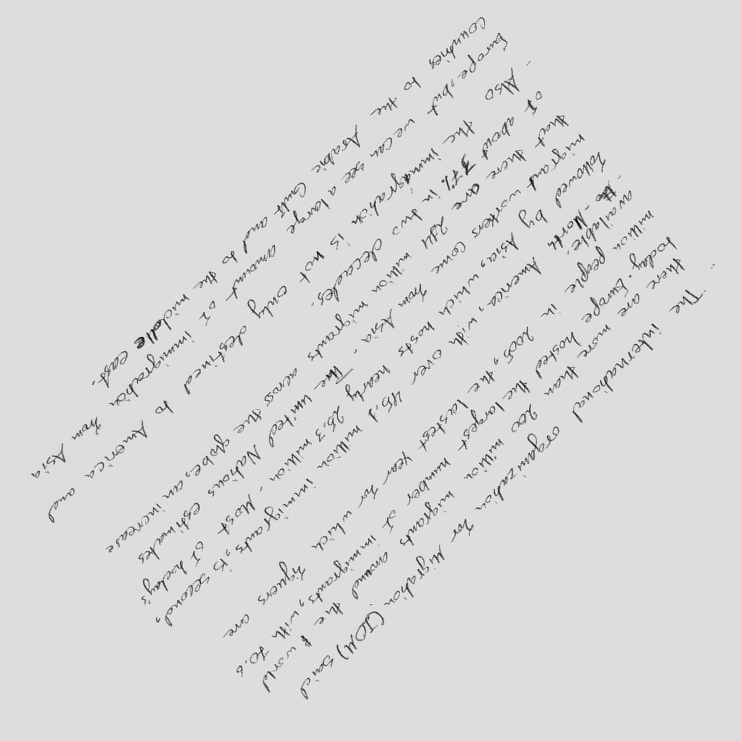 The international organization for Migration (IOM) said
there are more than 200 million migrants around the world
today. Europe hosted the largest number of immigrants, with 70.6
million people in 2005, the lastest year for which figuers are
available.
- North America, with over 45.1 million immigrants, is second,
followed by Asia, which hosts nearly 25.3 million. Most of today's
migrant workers come from Asia. The united Nations estimates
that there are 214 million migrants across the globe, an increase
of about 37% in two decades.
- Also the immigration is not only destined to America and
Europe, but we can see a large amount of immigration from Asia
Countries to the Arabic Gulf and to the middle east.